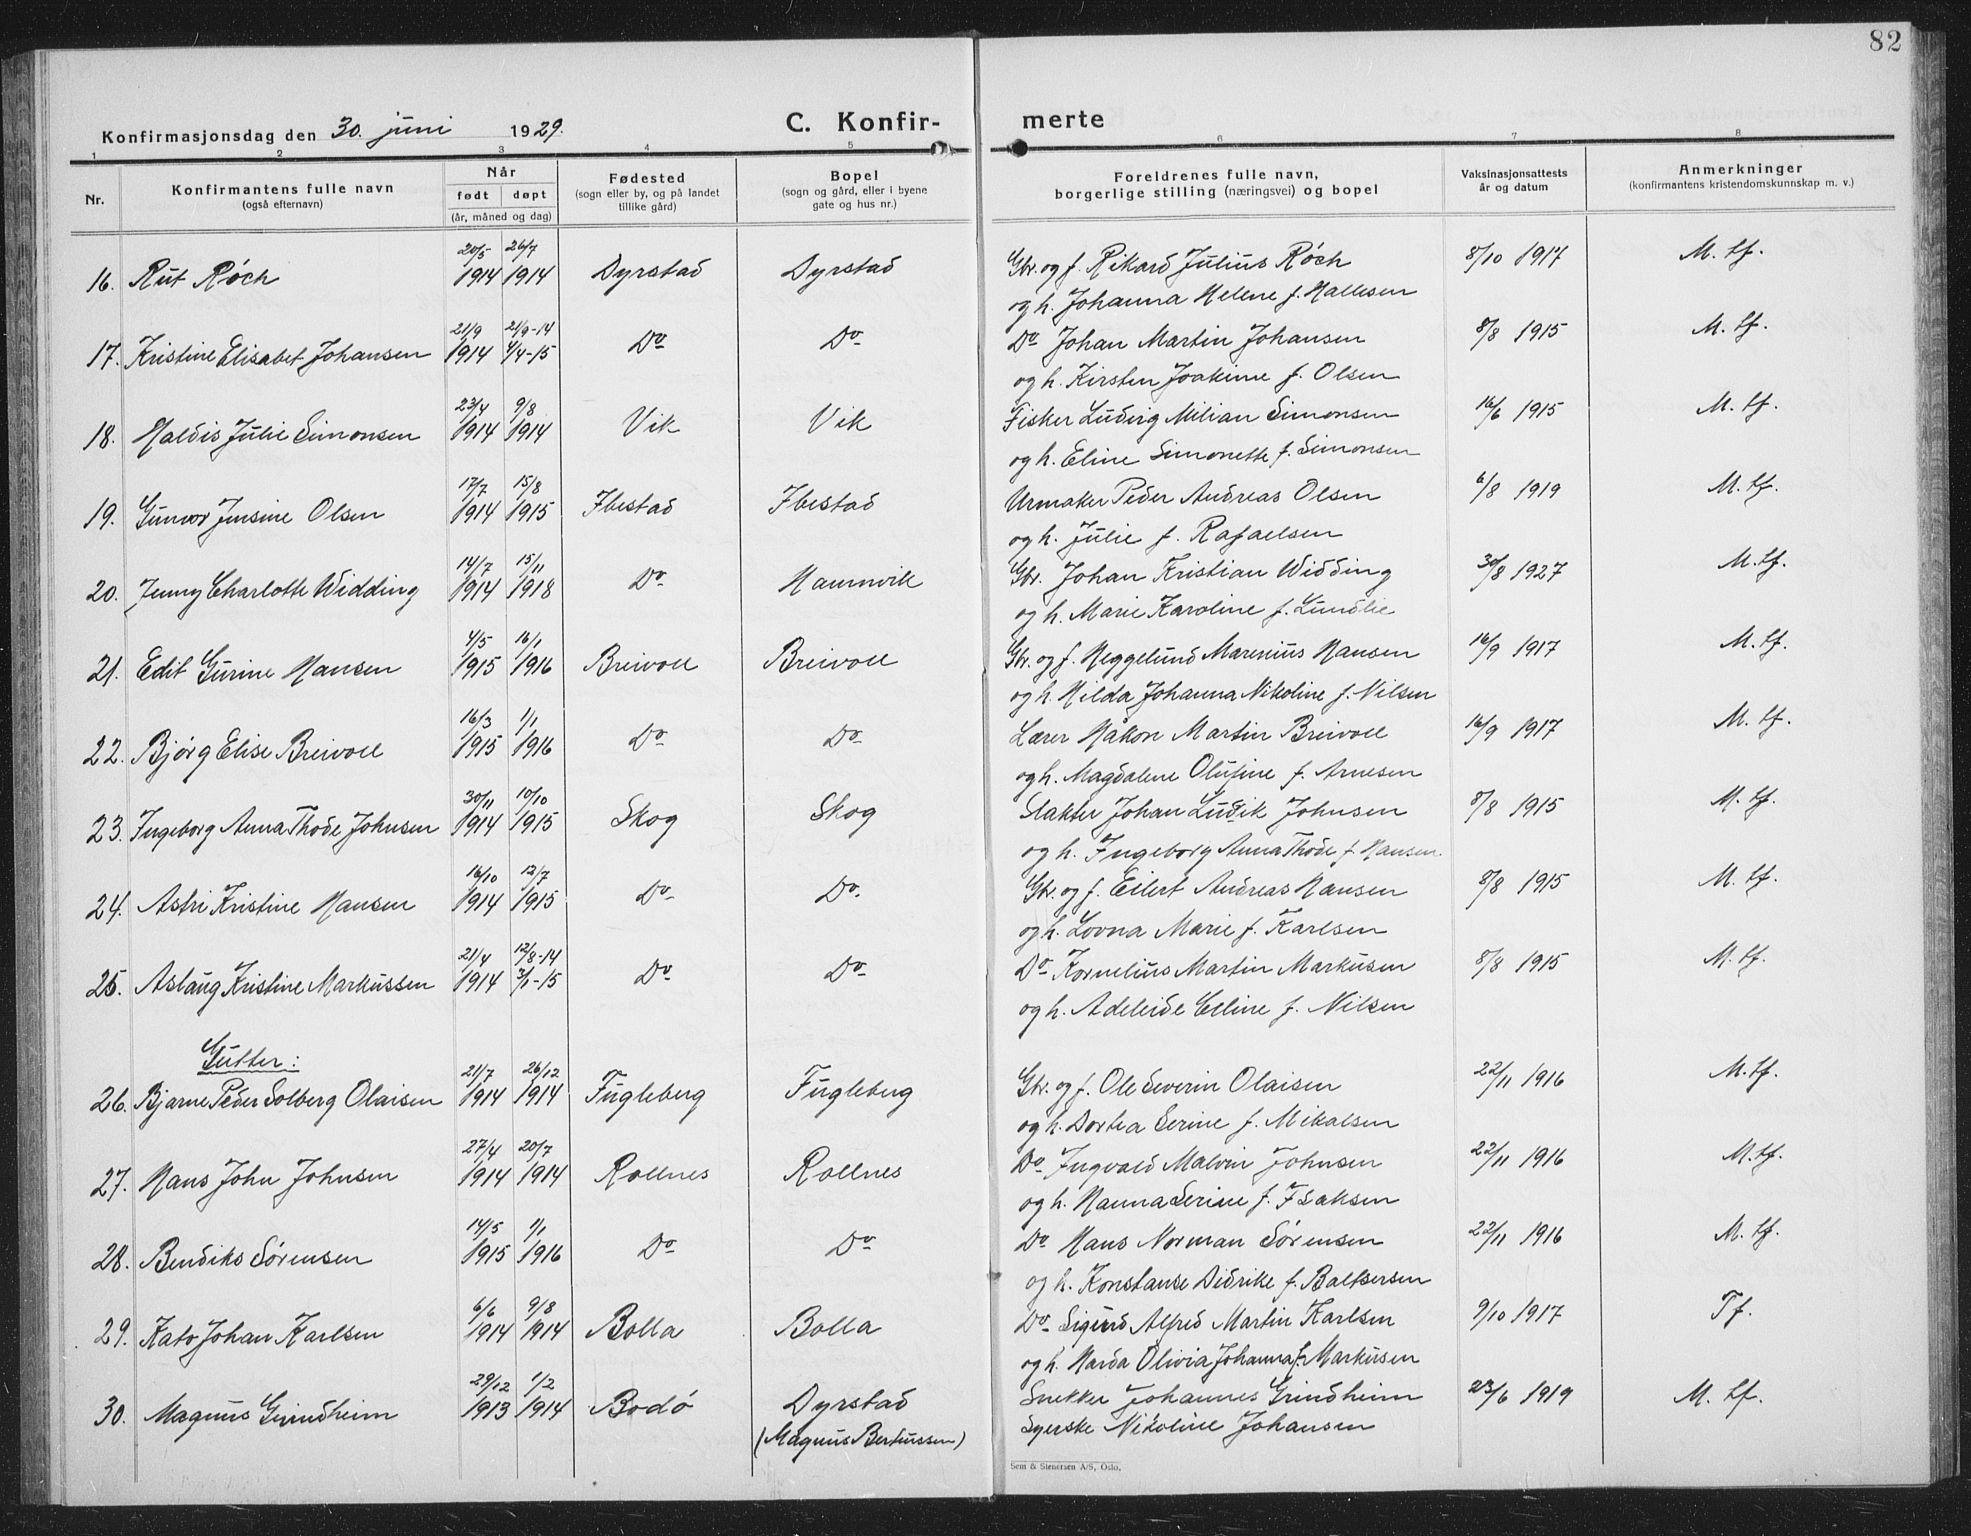 82
Konfirmasjonsdag den 30. juni 1929.
C. Konfir- merte
1 2 3 4 5 6 7 8
Nr.
Konfirmantens fulle navn
(også efternavn)
Når
født døpt
(år, måned og dag)
Fødested
(sogn eller by, og på landet
tillike gård)
Bopel
(sogn og gård, eller i byene
gate og hus nr.)
Foreldrenes fulle navn,
borgerlige stilling (næringsvei) og bopel
Vaksinasjonsattests
år og datum
Anmerkninger
(konfirmantens kristendomskunnskap m. v.)
20/5 26/7
16. Rut Røch 1914 1914 Dyrstad Dyrstad Gbr. og f. Rikard Julius Røch 8/10 1917 M. tf.
og h. Johanna Helene f. Hallesen
21/9 21/9-14
17. Kristine Elisabet Johansen 1914 4/4-15 Do Do Do Johan Martin Johansen 8/8 1915 M. tf.
og h. Kirsten Joakime f. Olsen
23/4 9/8
18. Haldis Julie Simonsen 1914 1914 Vik Vik Fisker Ludvig Milian Simonsen 16/6 1915 M. tf.
og h. Eline Simonette f. Simonsen
17/7 15/8
19. Gunvor Jensine Olsen 1914 1915 Ibestad Ibestad Urmaker Peder Andreas Olsen 6/8 1919 M. tf.
og h. Julie f. Rafaelsen
14/7 15/11
20. Jenny Charlotte Widding 1914 1918 Do Hamnvik Gbr. Johan Kristian Widding 30/8 1927 M. tf.
og h. Marie Karoline f. Lundlie
4/5 16/1
21. Edit Gurine Hansen 1915 1916 Breivoll Breivoll Gbr. og f. Heggelund Marenius Hansen 16/9 1917 M. tf.
og h. Hilda Johanna Nikoline f. Nilsen
16/3 1/1
22. Bjørg Elise Breivoll 1915 1916 Do Do Lærer Håkon Martin Breivoll 16/9 1917 M. tf.
og h. Magdalene Olufine f. Arnesen
30/11 10/10
23. Ingeborg Anna Thode Johnsen 1914 1915 Skog Skog Slakter Johan Ludvik Johnsen 8/8 1915 M. tf.
og h. Ingeborg Anna Thode f. Hansen.
16/10 12/7
24. Astri Kristine Hansen 1914 1915 Do Do Gbr. og f. Eilert Andreas Hansen 8/8 1915 M. tf.
og h. Lovna Marie f. Karlsen
21/4 12/8-14
25. Aslaug Kristine Markussen 1914 3/1-15 Do Do Do Kornelius Martin Markusen 8/8 1915 M. tf.
og h. Adeleide Eeline f. Nilsen
Gutter:
21/7 26/12
26. Bjarne Peder Solberg Olaisen 1914 1914 Fugleberg Fugleberg Gbr. og f. Ole Severin Olaisen 22/11 1916 M. tf.
og h. Dortea Serine f. Mikalsen
27/4 20/7
27. Hans John Johnsen 1914 1914 Rollnes Rollnes Do Ingvald Malvin Johnsen 22/11 1916 M. tf.
og h. Hanna Serine f. Isaksen
14/5 1/1
28. Bendiks Sørensen 1915 1916 Do Do Do Hans Norman Sørensen 22/11 1916 M. tf.
og h. Konstanse Didrike f. Baltsersen
6/6 9/8
29. Kato Johan Karlsen 1914 1914 Bolla Bolla Do Sigurd Alfred Martin Karlsen 9/10 1917 Tf.
og h. Harda Olivia Johanna f. Markusen
29/12 1/2
30. Magnus Grindheim 1913 1914 Bodø Dyrstad Snekker Johannes Grindheim 23/6 1919 M. tf.
(Magnus Bertussen) Syerske Nikoline Johansen
Sem & Stenersen A/S, Oslo.